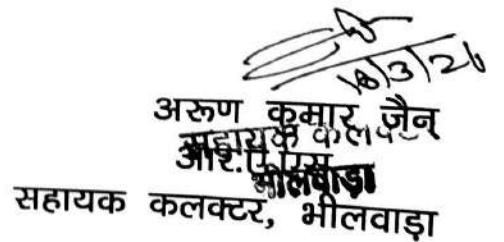 18/3/26
अरूण कुमार जैन
सहायक कलक्टर
आर.ए.एस.
भीलवाड़ा
सहायक कलक्टर, भीलवाड़ा